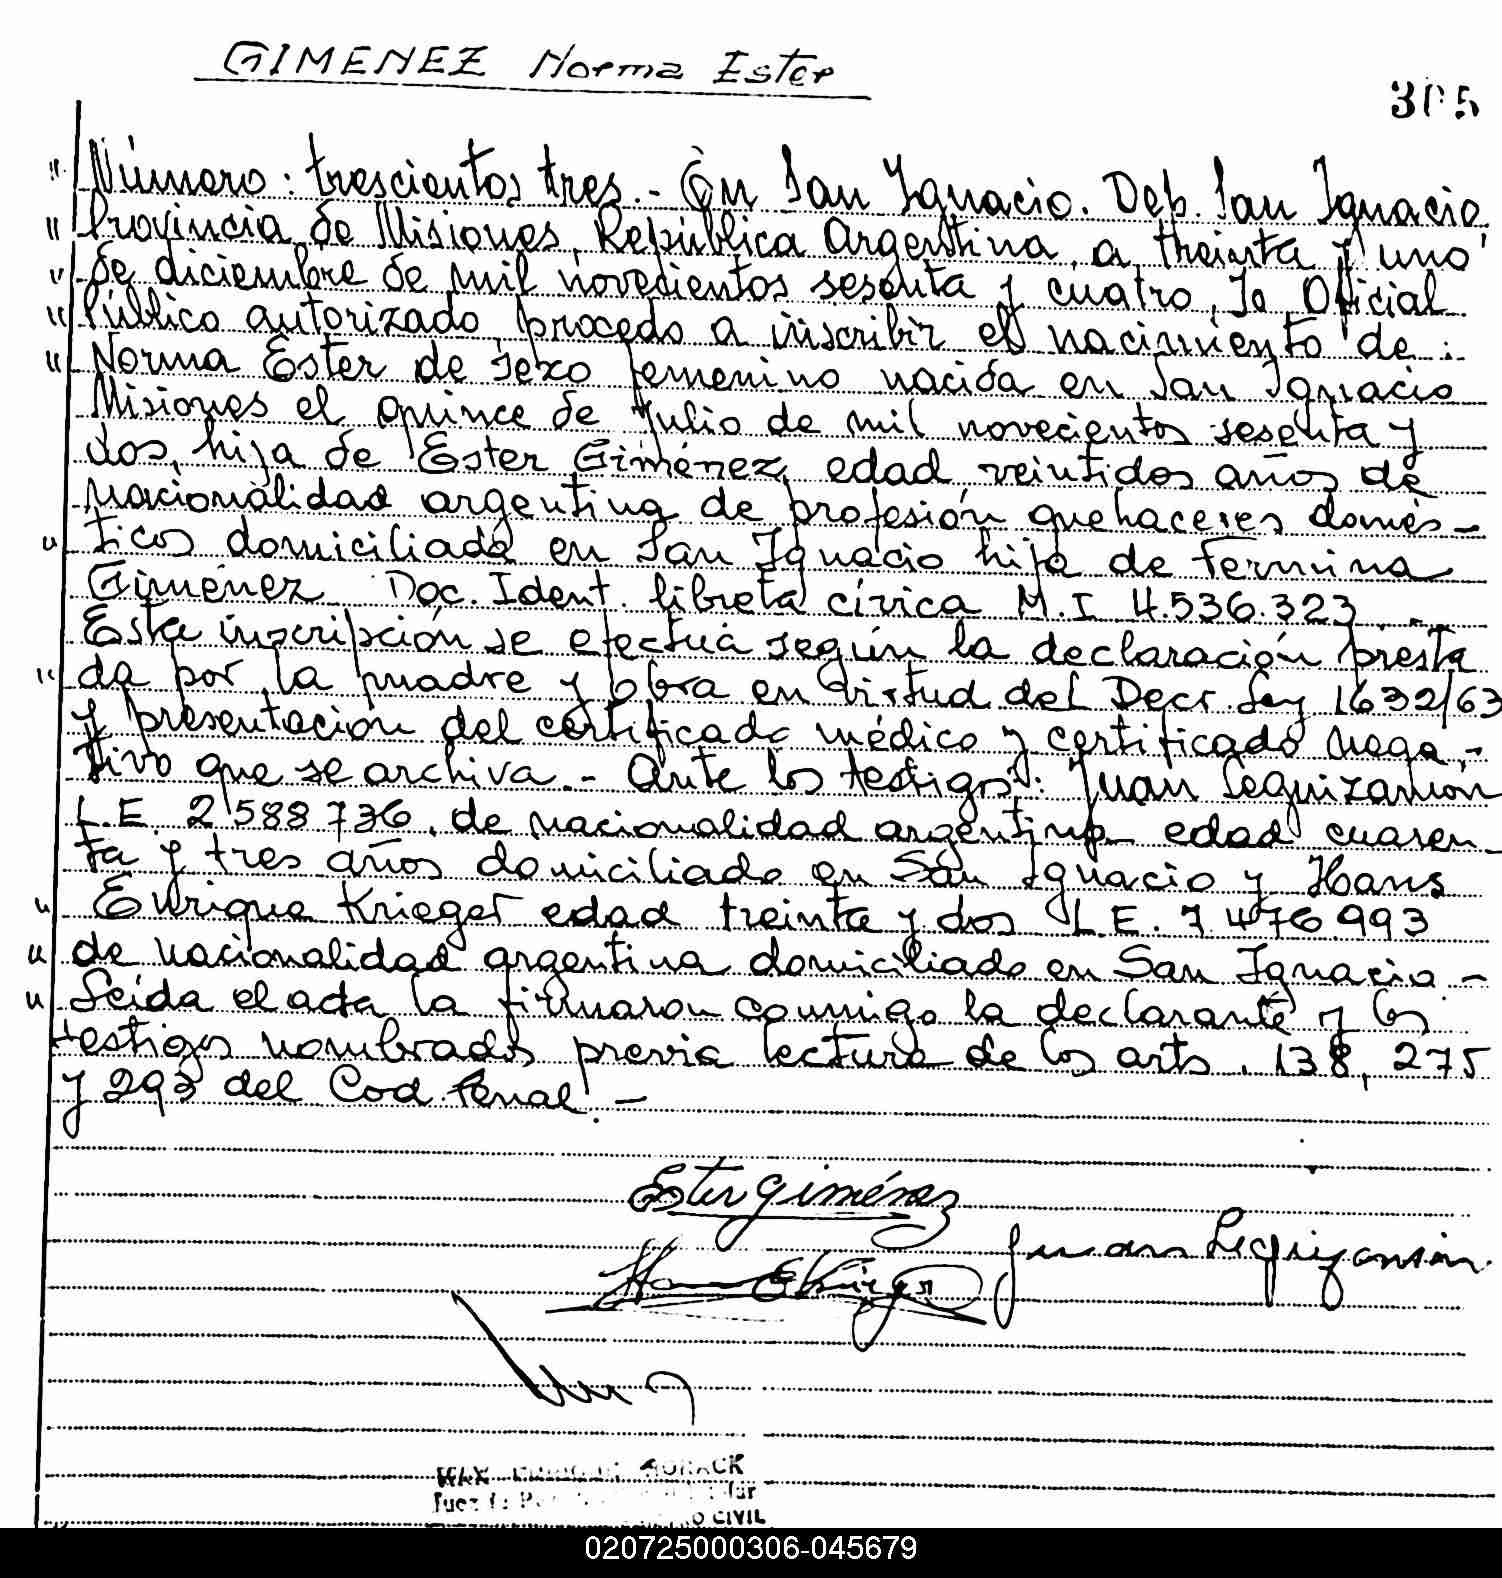 GIMENEZ Norma Ester
305
" Número: trescientos tres.- En San Ignacio. Dep. San Ignacio
" Provincia de Misiones, República Argentina, a treinta y uno
" de diciembre de mil novecientos sesenta y cuatro, Yo Oficial
" Público autorizado procedo a inscribir el nacimiento de:
" Norma Ester de sexo femenino nacida en San Ignacio
Misiones el quince de Julio de mil novecientos sesenta y
dos, hija de Ester Giménez, edad veintidos años de
nacionalidad argentina de profesión quehaceres domés-
" ticos domiciliada en San Ignacio hija de Fermina
Giménez Doc. Ident. libreta cívica M.I 4.536.323
Esta inscripción se efectua según la declaración presta
" da por la madre y obra en virtud del Decr. Ley 1632/63
y presentación del certificado médico y certificado nega-
tivo que se archiva.- Ante los testigos: Juan Leguizamón
L.E. 2588736, de nacionalidad argentina edad cuaren-
ta y tres años domiciliado en San Ignacio y Hans
" Enrique Krieger edad treinta y dos L.E. 7.476.993
" de nacionalidad argentina domiciliado en San Ignacio -
" Leída el acta la firmaron conmigo la declarante y los
testigos nombrados previa lectura de los arts. 138, 275
y 293 del Cod. Penal.-
Ester Giménez
Juan Leguizamón
Hans E Krieger
CIVIL
020725000306-045679